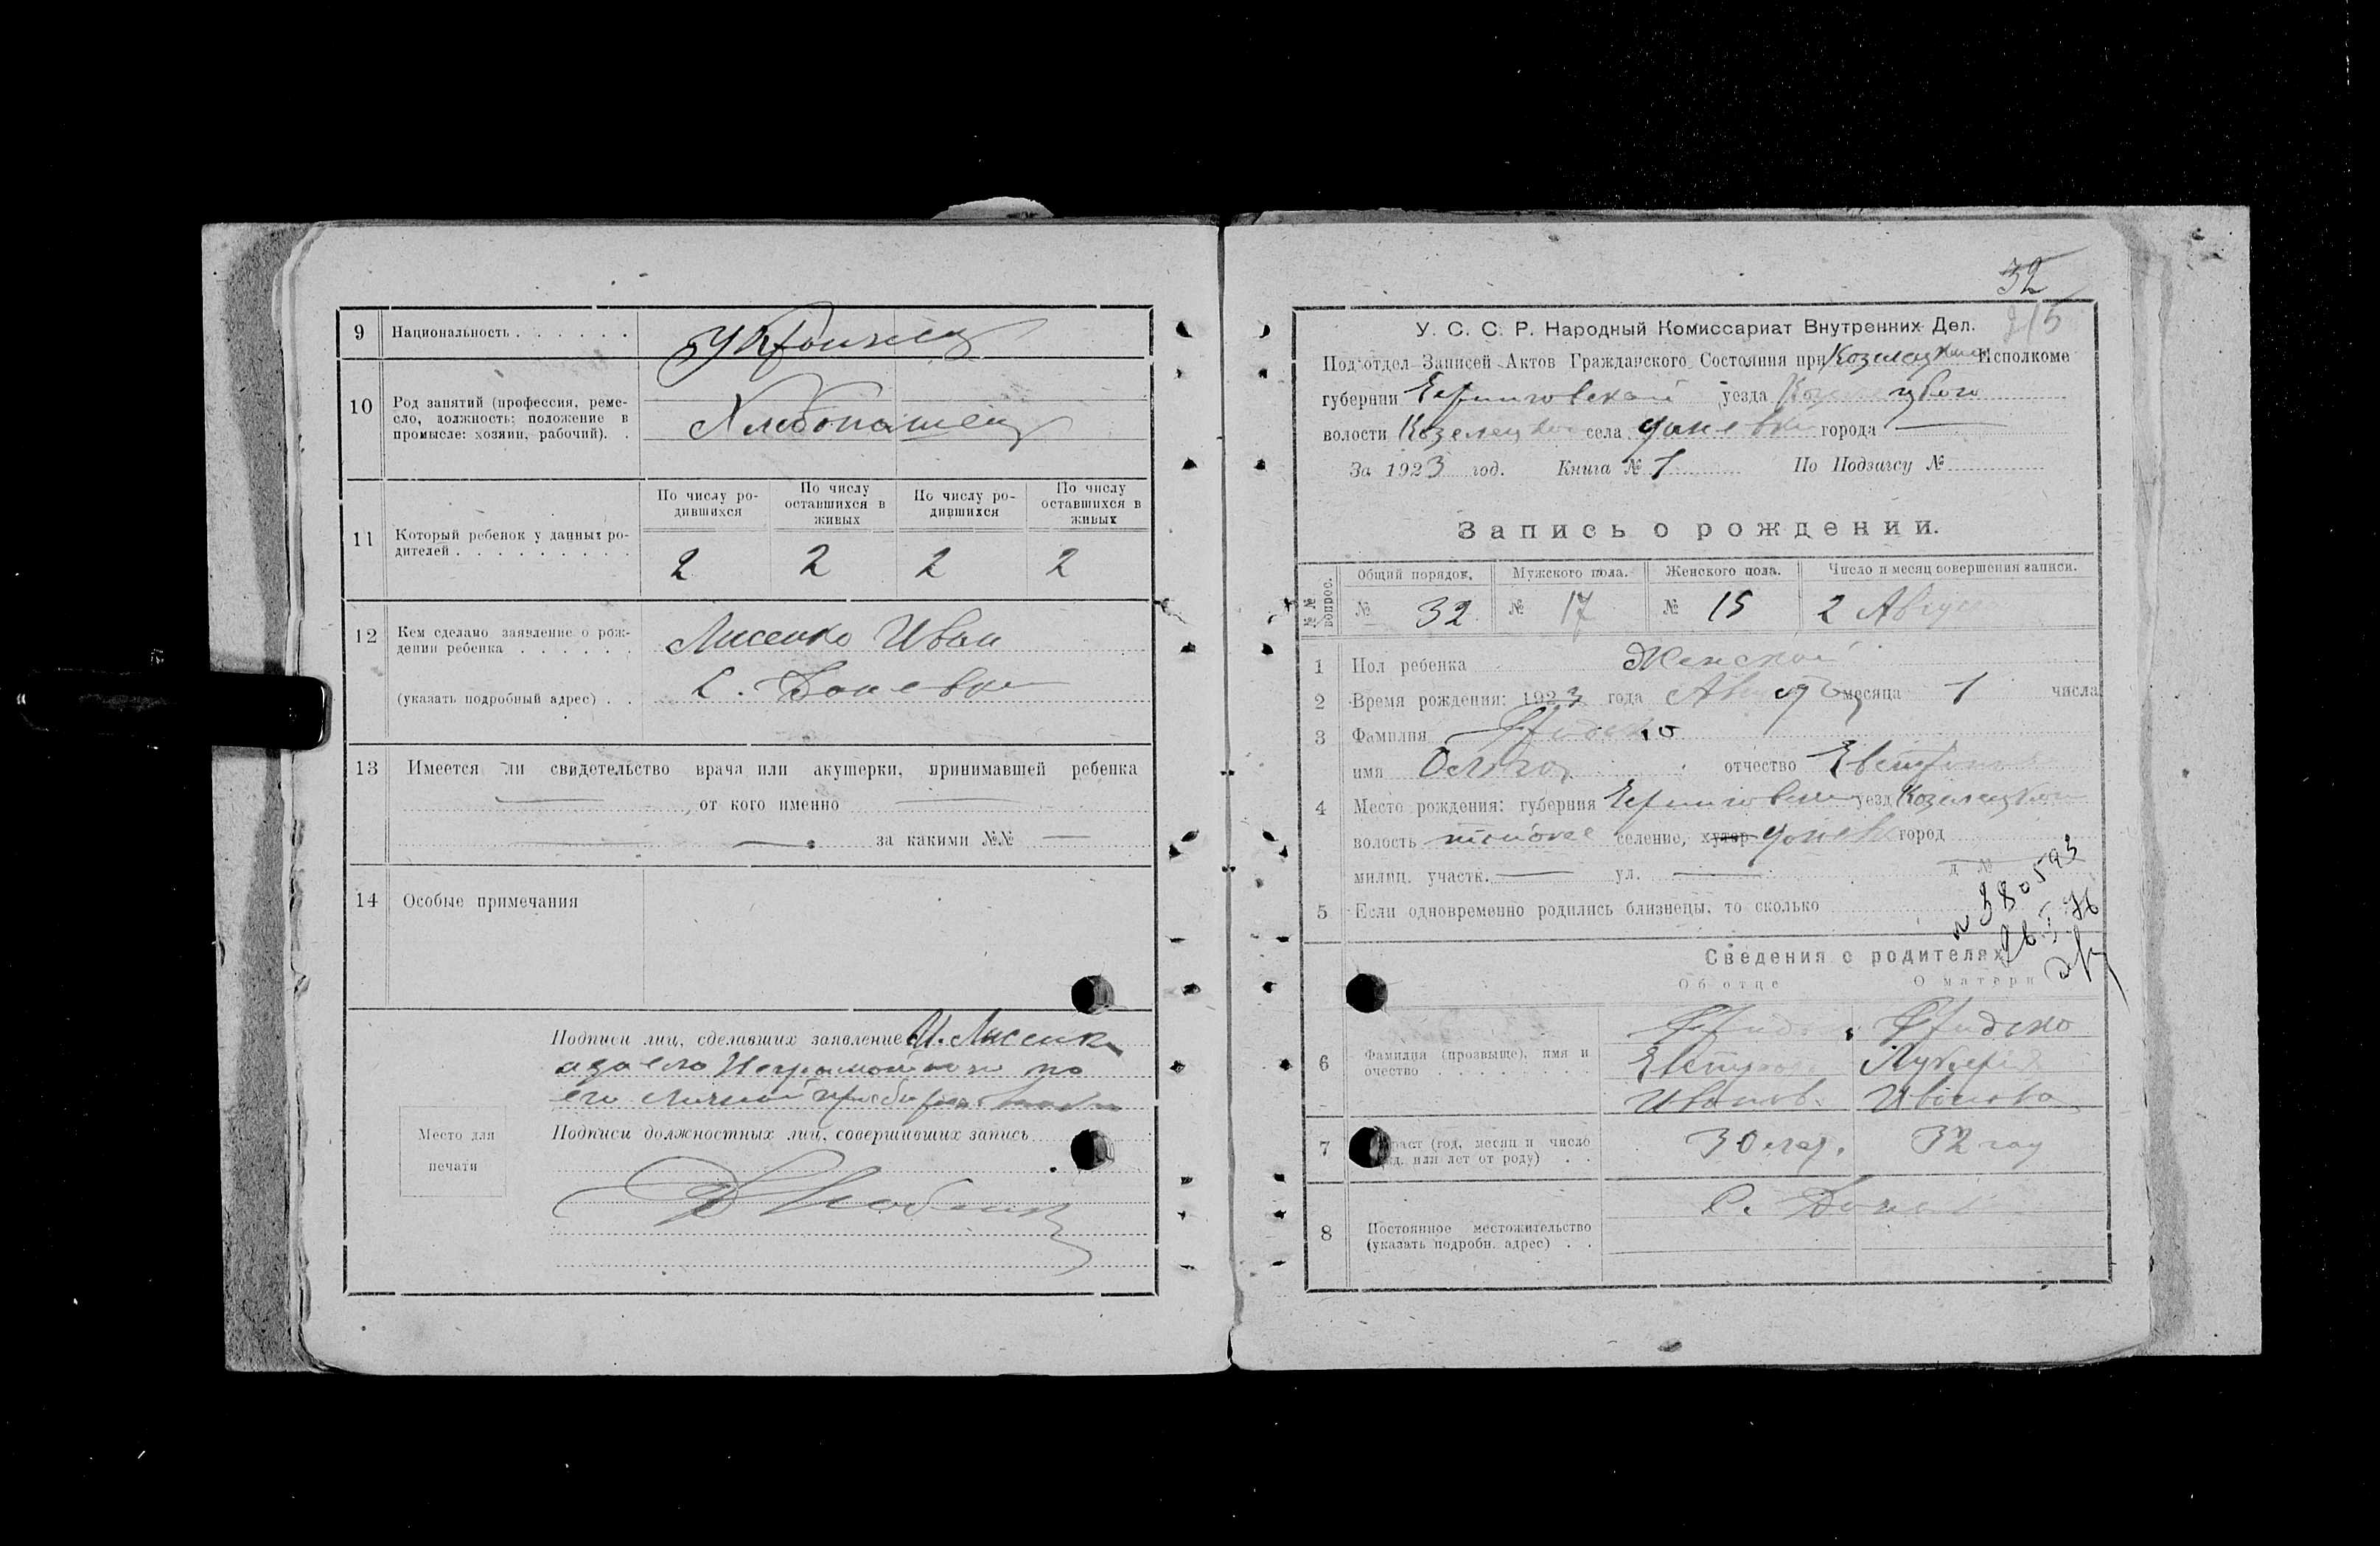 9 Национальность . . . . . . Украинец
10 Род занятий (профессия, реме-
сло, должность; положение в
промысле: хозяин, рабочий). .
Хлебопашец
11 Который ребенок у данных ро-
дителей . . . . . . . . .
По числу ро-
дившихся
По числу
оставшихся в
живых
По числу ро-
дившихся
По числу
оставшихся в
живых
2 2 2 2
12 Кем сделано заявление о рож-
дении ребенка . . . . . .
Лисенко Иван
(указать подробный адрес) . .
с. Даневка
13 Имеется ли свидетельство врача или акушерки, принимавшей ребенка
от кого именно
за какими №№
14 Особые примечания
Подписи лиц, сделавших заявление И. Лисенко
а за его Неграмотного по
его личной
Подписи должностных лиц, совершивших запись
Место для
печати
32
215
У. С. С. Р. Народный Комиссариат Внутренних Дел.
Под'отдел Записей Актов Гражданского Состояния при Козелецком Исполкоме
губернии Черниговской уезда Козелецкого
волости Козелецкой села Даневки города
За 1923 год. Книга № 1 По Подзагсу №
Запись о рождении.
№№ вопрос.
Общий порядок. Мужского пола. Женского пола. Число и месяц совершения записи.
№ 32 № 17 № 15 2 Август
1 Пол ребенка Женской
2 Время рождения: 1923 года Август месяца 1 числа
3 Фамилия
имя Ольга отчество
4 Место рождения: губерния Черниговская уезд Козелецкой
волость селение, хутор город
милиц. участк. ул. д №
5 Если одновременно родились близнецы, то сколько
Сведения о родителях
Об отце О матери
6 Фамилия (прозвище), имя и
очество . . . . . . . .
Иванов. Ивановна
7 (год, месяц и число
или лет от роду) . .
30 лет. 32 год
8 Постоянное местожительство
(указать подробн. адрес) . .
С. Даневка